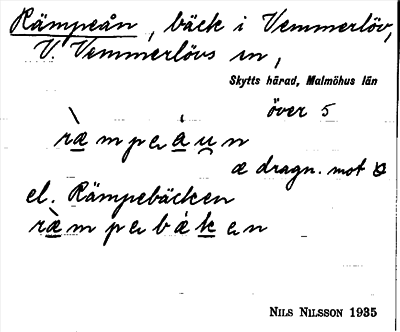 Rämpeån, bäck i Vemmerlöv,
V. Vemmerlövs sn,
Skytts härad, Malmöhus län
över 5
ræ̀mpeáun
æ dragn. mot a
el. Rämpebäcken
ræ̀mpebáken
NILS NILSSON 1935